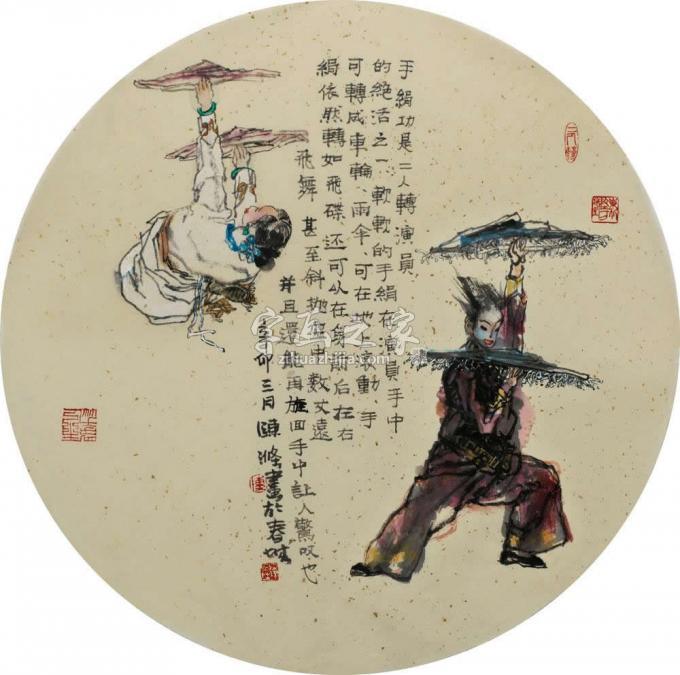 手絹功是二人轉演員
的絕活之一軟軟的手絹在演員手中
可轉成車輪、雨傘、可在地上滾動、手
絹依然轉如飛碟还可以在身前后左右
飛舞 甚至斜抛空中数丈遠
并且還能再旋回手中让人驚叹也
辛卯三月畫於春城
字画之家
zihuazhijia.com